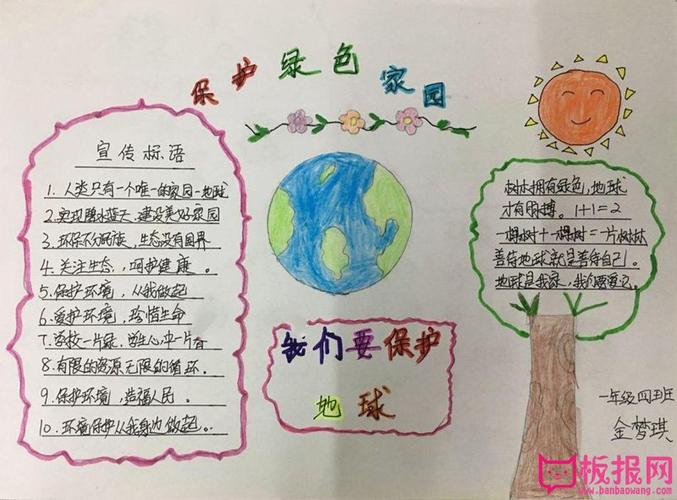 保护绿色家园
宣传标语
1. 人类只有一个唯一的家园一地球
2. 实现碧水蓝天,建设美好家园
3. 环保不分民族,生态没有国界
4. 关注生态,呵护健康。
5. 保护环境,从我做起
6. 爱护环境,珍惜生命
8. 有限的资源无限的循环.
9. 保护环境,造福人民.
10. 环境保护从我身边做起。
我们要保护
地球
树木拥有绿色,地球
才有脉搏。1+1=2
一棵树+一棵树=一片树林
善待地球就是善待自己。
地球是我家,我们要爱它。
一年级四班
金梦琪
板报网
www.banbaowang.com